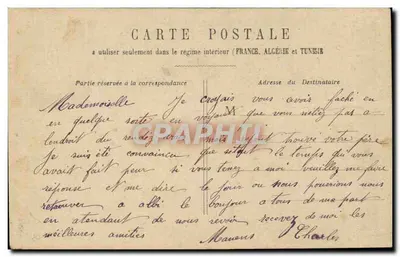 CARTE POSTALE
à utiliser seulement dans le régime intérieur (FRANCE, ALGÉRIE et TUNISIE
Partie réservée à la correspondance
Adresse du Destinataire
Mademoiselle Je croyais vous avoir faché en
en quelque sorte en voyant que vous netiez pas a
lendroit du rendez
CPARHTI
votre père
Je suis été convaincu que sitot le temps qui vous
avait fait peur si vous tenez a moi veuillez me faire
réponse et me dire le jour ou nous pourrions nous
retrouver a albi le bonjour a tous de ma part
en attendant de nous revoir recevez de moi les
meilleures amitiés Charles